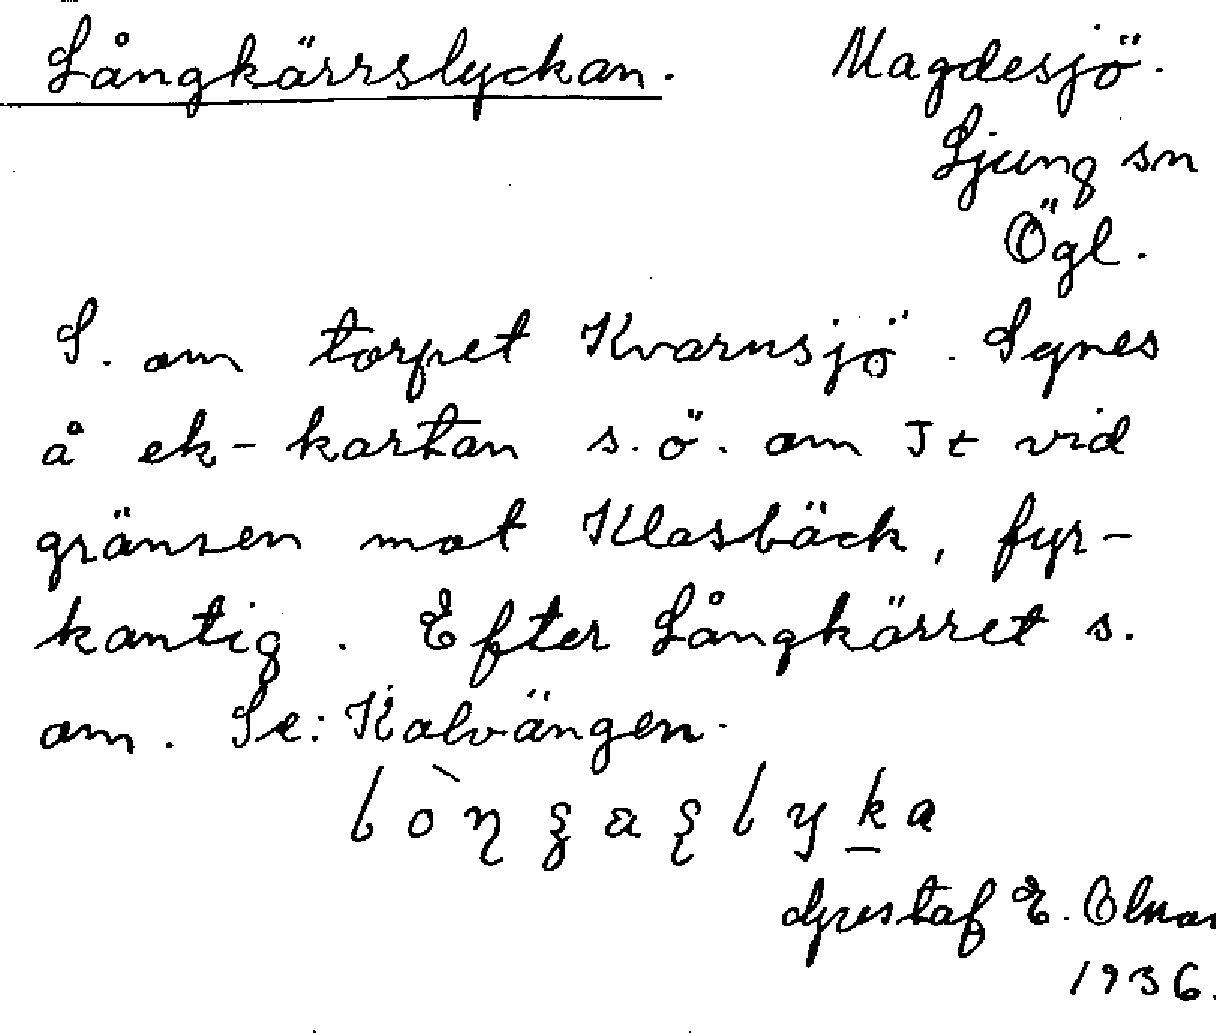 Långkärrslyckan. Magdesjö.
Ljung sn
Ögl.
S. om torpet Kvarnsjö. Synes
å ek-kartan s.ö. om Tt vid
gränsen mot Klasbäck, fyr-
kantig. Efter Långkärret s.
om. Se: Kalvängen.
Gustaf E.
1936.